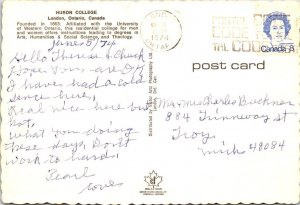 HURON COLLEGE
London, Ontario, Canada
Founded in 1863. Affiliated with the
University of Western Ontario, this
residential college for men
and women offers instruction leading to degrees in
Arts, Humanities & Social Science, and Theology.
June 8/74
Hello Therese & Chuck
Hope you are O.K.
I have had a cold
since
Real nice here but
hot.
What you doing
these days. Don't
work to hard.
Pearl
Loves
1974
Canada 8
post card
Mr & Mrs Charles Buckner
884 Trinneway St
Troy,
Mich 48084